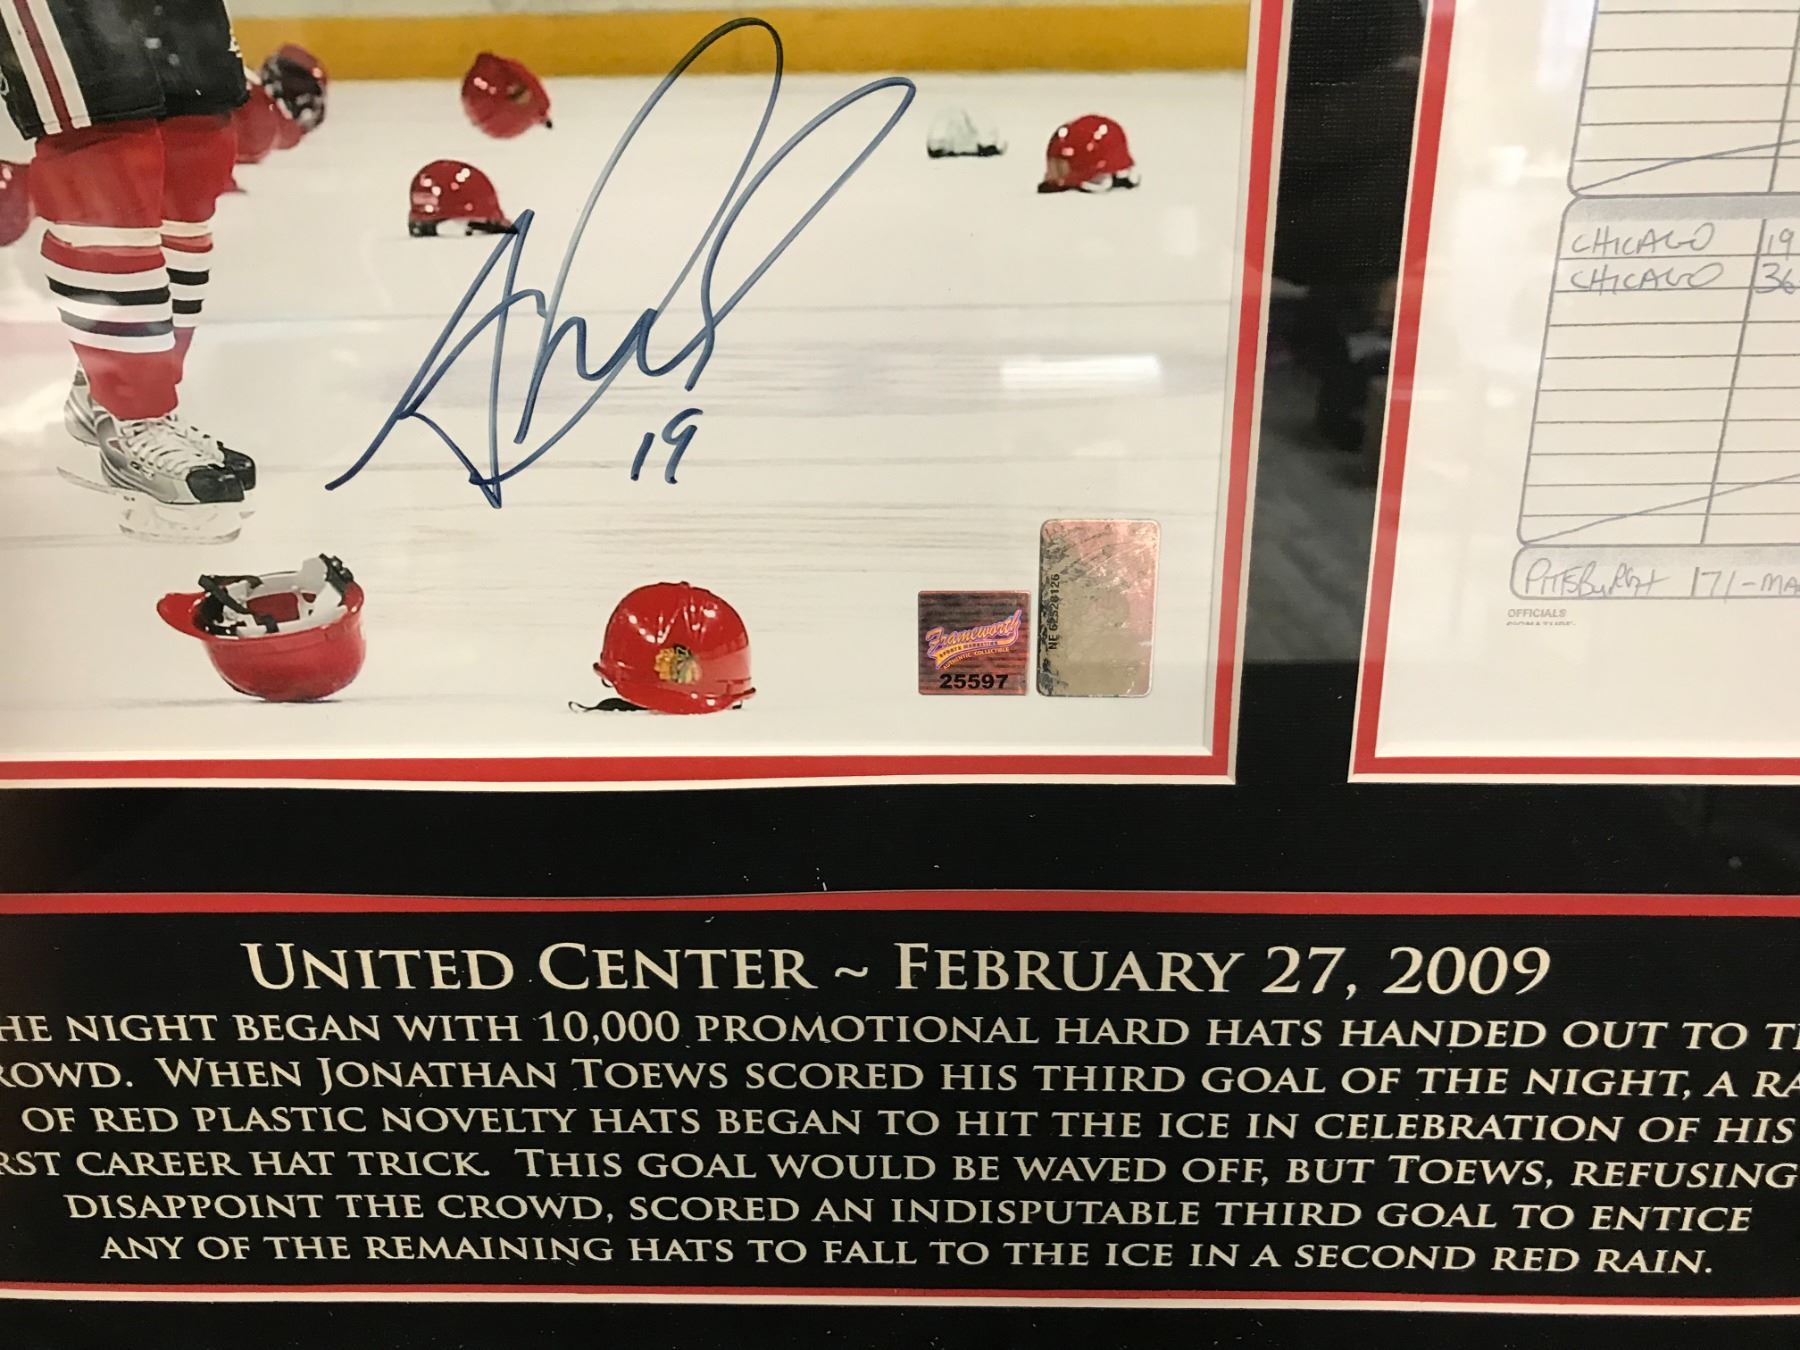 19
Frameworth
SPORTS MARKETING
AUTHENTIC COLLECTIBLE
25597
CHICAGO 19
CHICAGO 36
PITTSBURGH 171-MA
OFFICIALS
UNITED CENTER ~ FEBRUARY 27, 2009
HE NIGHT BEGAN WITH 10,000 PROMOTIONAL HARD HATS HANDED OUT TO T
ROWD. WHEN JONATHAN TOEWS SCORED HIS THIRD GOAL OF THE NIGHT, A RA
OF RED PLASTIC NOVELTY HATS BEGAN TO HIT THE ICE IN CELEBRATION OF HIS
RST CAREER HAT TRICK. THIS GOAL WOULD BE WAVED OFF, BUT TOEWS, REFUSING
DISAPPOINT THE CROWD, SCORED AN INDISPUTABLE THIRD GOAL TO ENTICE
ANY OF THE REMAINING HATS TO FALL TO THE ICE IN A SECOND RED RAIN.